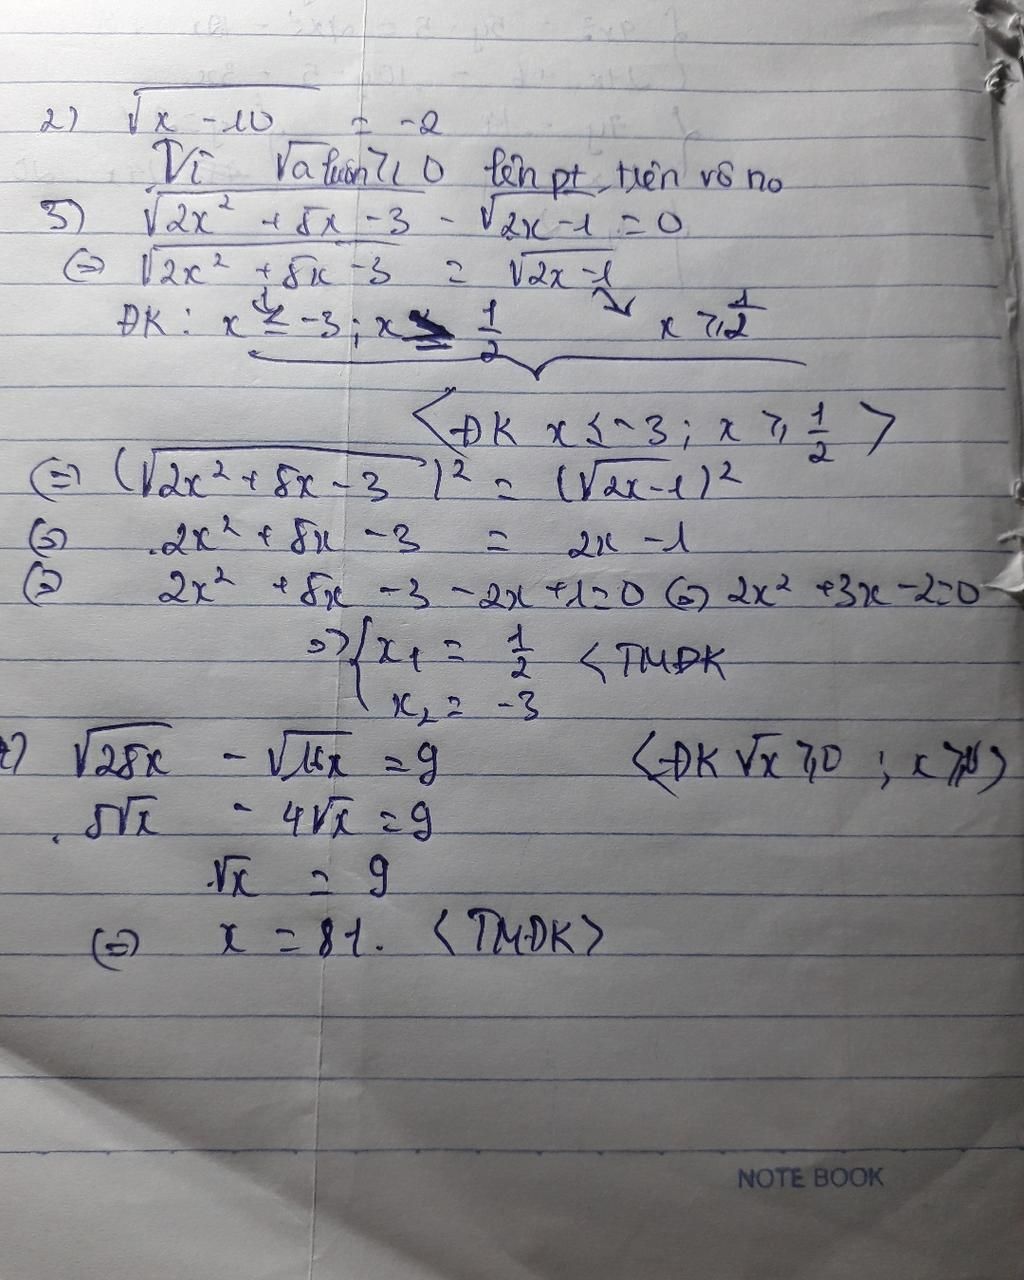 2) √(x - 10) = -2
Vì √a luôn ≥ 0 lên pt trên vô no
3) √(2x² + 5x - 3) - √(2x - 1) = 0
(=) √(2x² + 5x - 3) = √(2x - 1)
ĐK: x ≤ -3; x ≥ 1/2 x ≥ 1/2
<ĐK x ≤ -3; x ≥ 1/2>
(=) (√(2x² + 5x - 3))² = (√(2x - 1))²
(=) 2x² + 5x - 3 = 2x - 1
(=) 2x² + 5x - 3 - 2x + 1 = 0 (=) 2x² + 3x - 2 = 0
=> { x₁ = 1/2 <TMĐK
x₂ = -3
√25x - √16x = 9 <ĐK √x ≥ 0; x ≥ >
5√x - 4√x = 9
√x = 9
(=) x = 81. <TMĐK>
NOTE BOOK